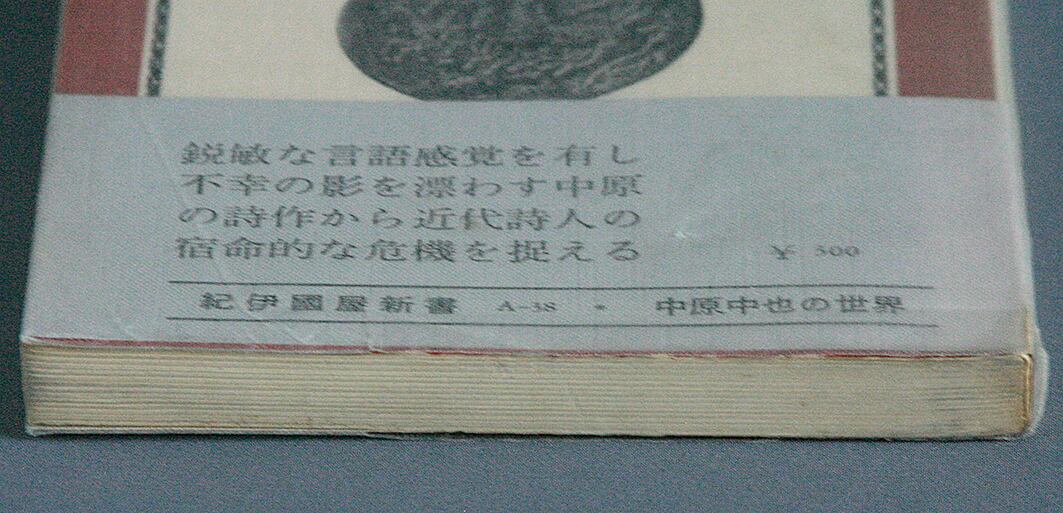 鋭敏な言語感覚を有し
不幸の影を漂わす中原
の詩作から近代詩人の
宿命的な危機を捉える
￥ 300
紀伊國屋新書 A-38 * 中原中也の世界